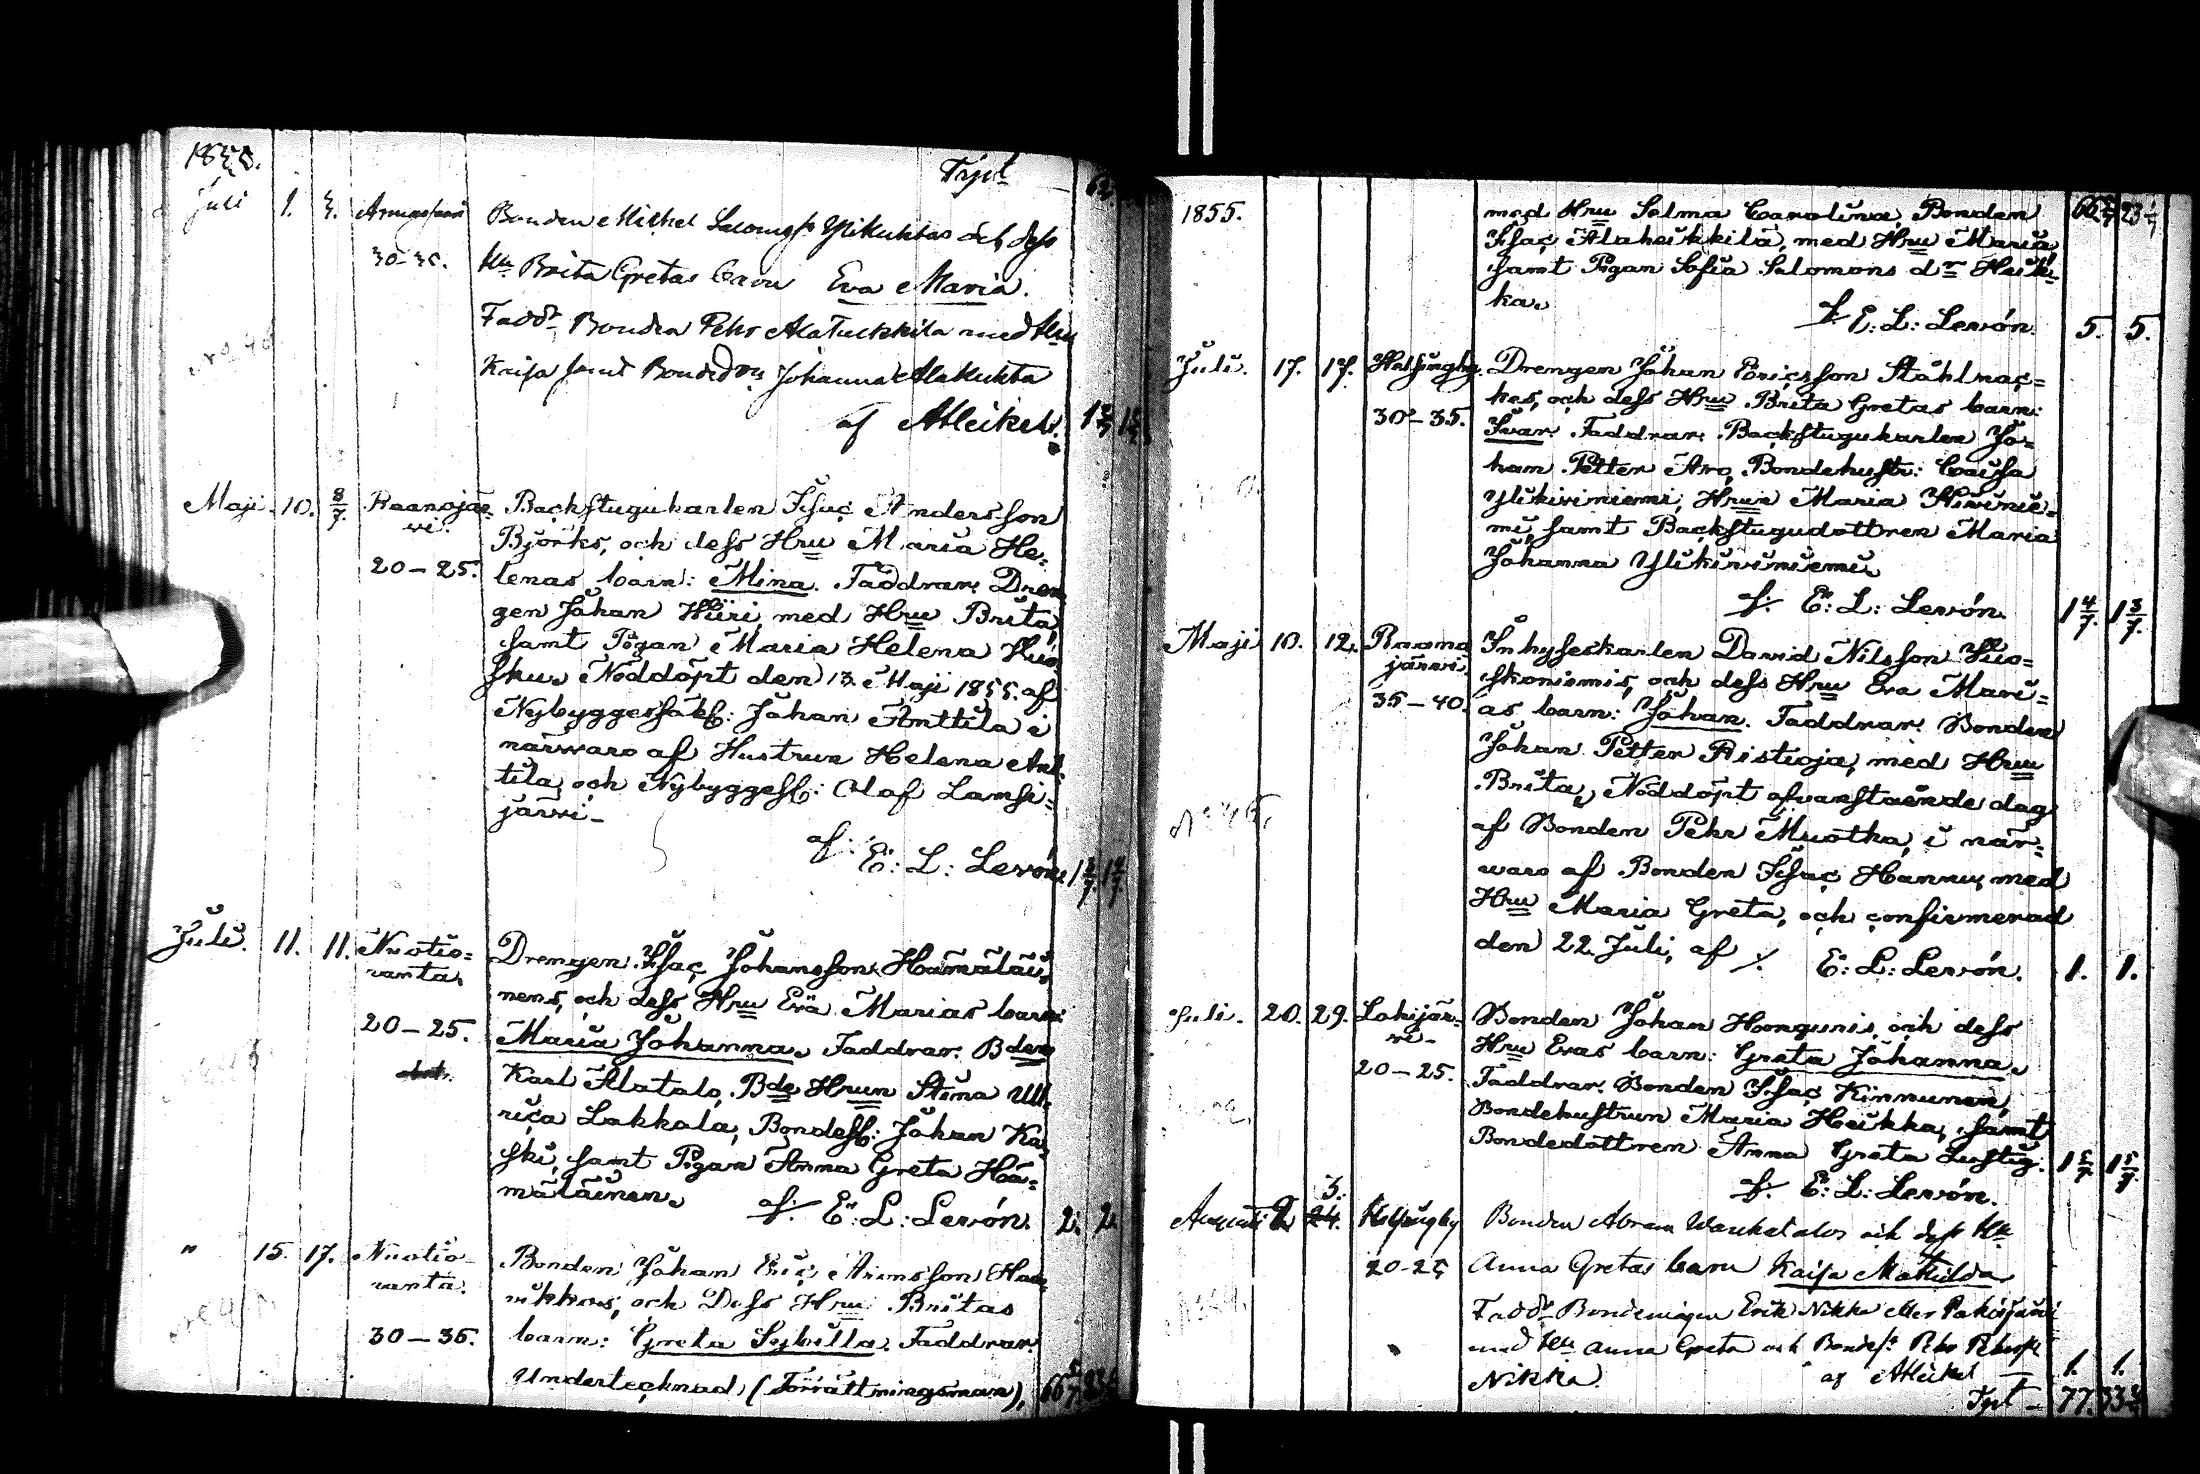 1855.
Trpt
Juli 1. 5.
30-35.
Bonden Michel Ylikuktas och dess
Hu Brita Gretas barn Eva Maria.
Faddr Bonden Pehr Alatuckkila med Hru
Kaisa samt Bonded. Johanna Alakukta
af A Heikel.
Maji 10. 8/7. Raanojär-
vi.
20-25.
Backstugukarlen Isac Andersson
Björks, och dess Hru Maria He-
lenas barn: Mina. Faddrar: Dren
gen Johan Hiiri med Hru Brita,
samt Pigan Maria Helena Huo
sku. Nöddöpt den 13. Maji 1855. af
Nybyggessöhn: Johan Anttila i
närwaro af Hustrun Helena Ant-
tila och Nybyggess: Olof Lansi-
järwi-
af: E: L: Levón. 1 2/7. 1 2/7
Juli. 11. 11. Nuotio-
ranta.
20-25.
Drengen Isac Johansson Hämäläi-
nens, och dess Hru Eva Marias barn:
Maria Johanna. Faddrar: Bden
Karl Alatalo, Bde Hrun Stina Ul-
rica Lakkala, Bondess: Johan Ka-
ski, samt Pigan Anna Greta Hä-
mäläinen.
af: E: L: Levón. 2. 2.
" 15. 17. Nuotio-
ranta.
30-35.
Bonden Johan Eric Aronsson
och Dess Hru Britas
barn: Greta Sybilla. Faddrar:
Undertecknad (Förrättningsman),
1855.
med Hru Selma Carolina, Bonden
Isac Alaheikkilä, med Hru Maria,
samt Pigan Sofia Salomons dr Heik-
ka.
f. E: L: Levón. 5. 5.
Juli. 17. 17. Helsingby.
30-35.
Drengen Johan Ericsson Stählnac-
kes, och dess Hru Brita Gretas barn:
Ivar. Faddrar: Backstugukarlen Jo-
han Petter Aro, Bondehustr: Caisa
Ylikiviniemi, Hrun Maria Kivinie-
mi, samt Backstugudottren Maria
Johanna Ylikiviniemi
f. E: L: Levón. 1 4/7. 1 3/7.
Maji 10. 12. Raano
järwi.
35-40.
Inhyseskarlen David Nilsson Huo-
skoniemis, och dess Hru Eva Mari-
as barn: Johan. Faddrar: Bonden
Johan Petter Ristioja, med Hru
Brita, Nöddöpt ofvanstående dag
af Bonden Pehr Muotka, i när-
waro af Bonden Isac Hannu, med
Hru Maria Greta, och confirmerad
den 22. Juli, af f. E: L: Levón. 1. 1.
Juli. 20. 29. Lohijär-
vi-
20-25.
Bonden Johan Hoongunis, och dess
Hru Evas barn: Greta Johanna.
Faddrar: Bonden Isac Kinnunen,
Bondehustrun Maria Heikka, samt
Bondedottren Anna Greta Lustig.
f. E: L: Levón. 1 5/7. 1 5/7
Augusti 2 3. Helsingby
20-25
Bonden Abram Wanhatalos och dess Hu
Anna Gretas barn Kaisa Matilda
Faddr Erik Nikka
med Hu Anna Greta och Bondes. Pehr Pehrsson
Nikka.
af A Heikel 1. 1.
Trpt - 77.